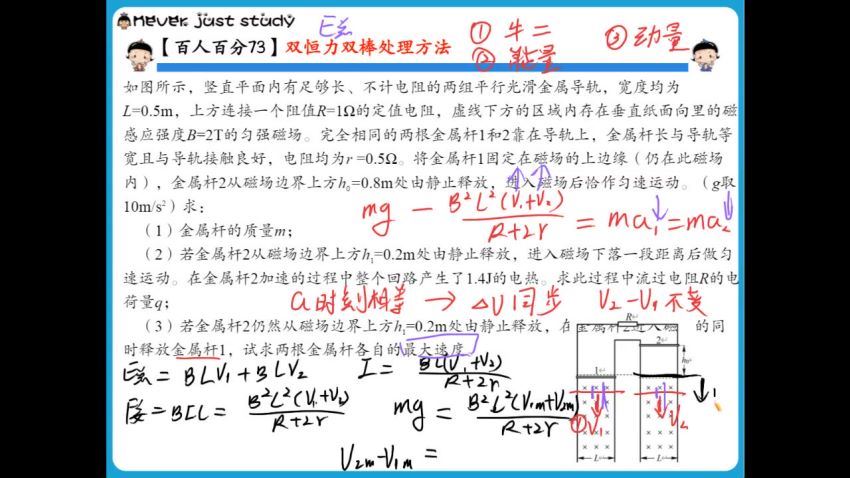 Never just study
E总
① 牛二
② 能量
③ 动量
【百人百分73】双恒力双棒处理方法
如图所示，竖直平面内有足够长、不计电阻的两组平行光滑金属导轨，宽度均为
L=0.5m，上方连接一个阻值R=1Ω的定值电阻，虚线下方的区域内存在垂直纸面向里的磁
感应强度B=2T的匀强磁场。完全相同的两根金属杆1和2靠在导轨上，金属杆长与导轨等
宽且与导轨接触良好，电阻均为r=0.5Ω。将金属杆1固定在磁场的上边缘（仍在此磁场
内），金属杆2从磁场边界上方h₀=0.8m处由静止释放，进入磁场后恰作匀速运动。（g取
10m/s²）求：
mg - B²L²(V₁+V₂)/R+2r = ma₁ = ma₂
（1）金属杆的质量m；
（2）若金属杆2从磁场边界上方h₁=0.2m处由静止释放，进入磁场下落一段距离后做匀
速运动。在金属杆2加速的过程中整个回路产生了1.4J的电热。求此过程中流过电阻R的电
荷量q；
a时刻相等 → △V同步 V₂-V₁不变
（3）若金属杆2仍然从磁场边界上方h₁=0.2m处由静止释放，在金属杆2进入磁 的同
时释放金属杆1，试求两根金属杆各自的最大速度。
E总 = BLV₁+BLV₂ I = BL(V₁+V₂)/R+2r
F安 = BIL = B²L²(V₁+V₂)/R+2r mg = B²L²(V₁m+V₂m)/R+2r
V₂m-V₁m =
R
2
h₀
1
V₁
V₂
L
L